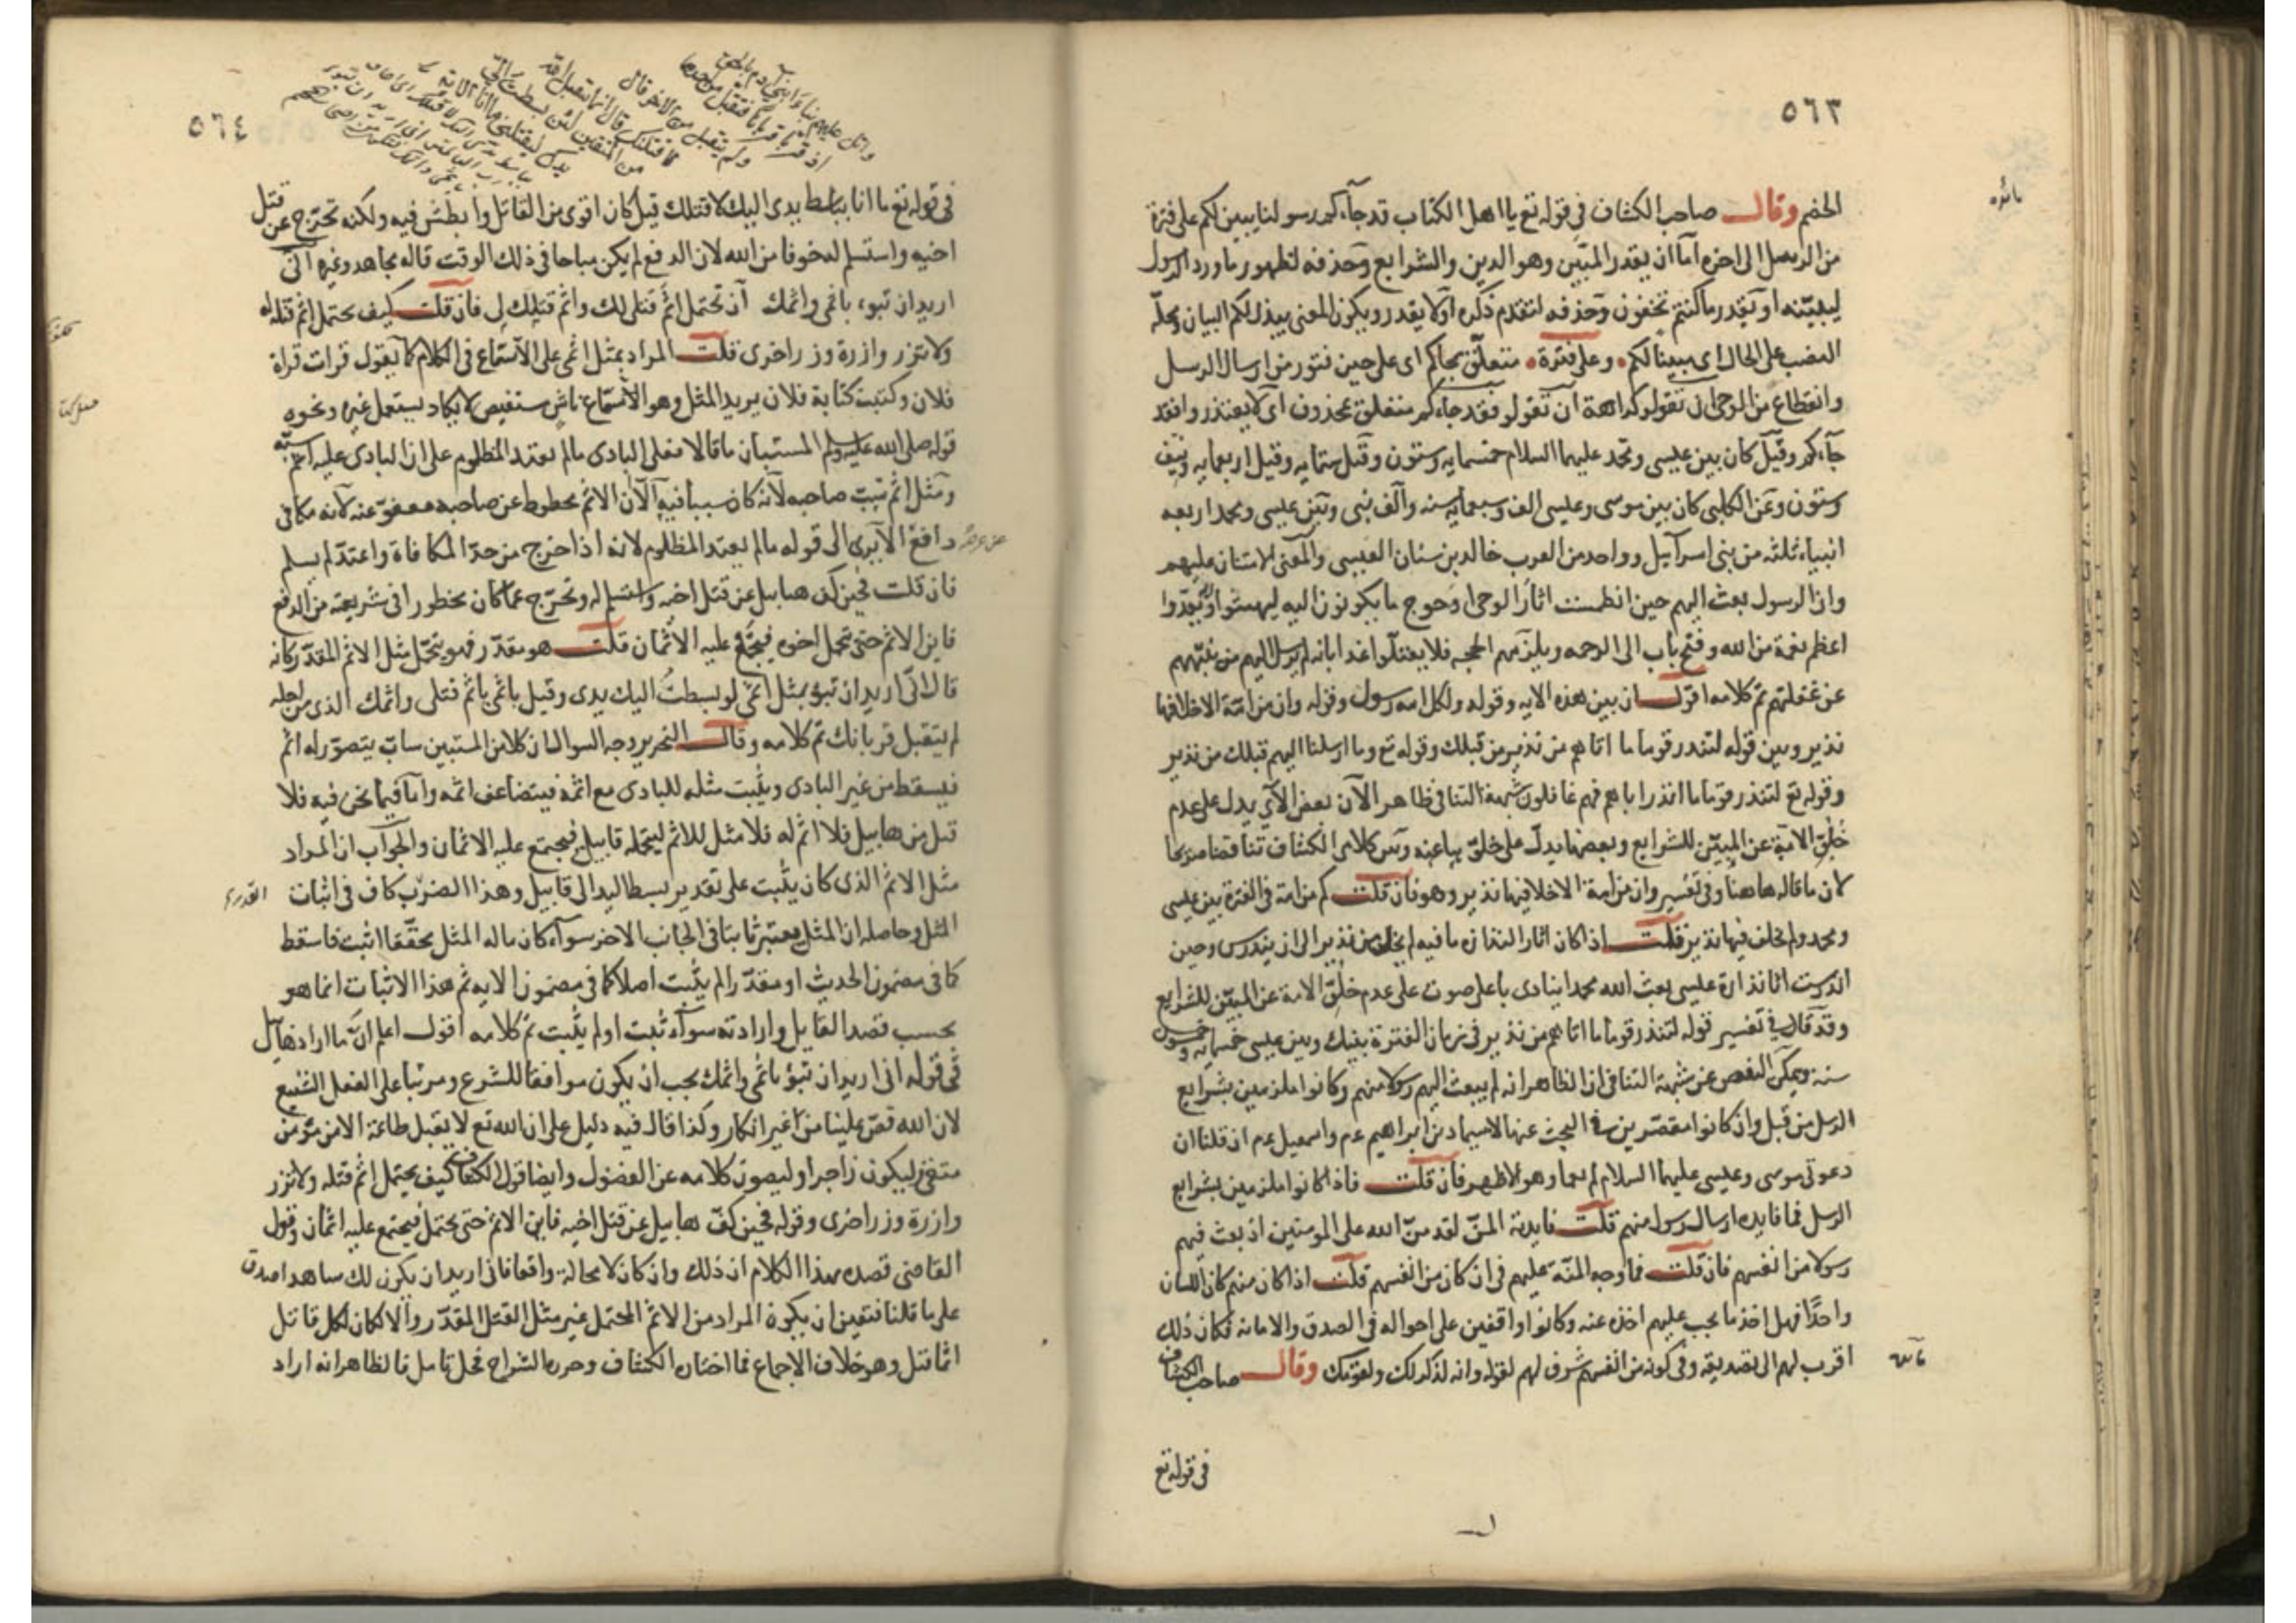 ٥٦٣
مائده
الخصم وقال صاحب الكشاف في قوله تع يا اهل الكتاب قد جآءكم رسولنا يبين لكم على فترة
من الرسل الى اخره اما ان يقدر المبين وهو الدين والشرايع وحذفه لظهور ما ورد الرسول
ليبينه او يقدر ما كنتم تخفون وحذفه لتقدم ذكره او لا يقدر ويكون المعنى يبذل لكم البيان ومحله
النصب على الحال اى مبينا لكم وعلى فترة متعلق بجاكم اى على حين فتور من ارسال الرسل
وانقطاع من الوحى ان تقولوا كراهة ان تقولوا فقد جاءكم متعلق بمحذوف اى لا يعتذروا فقد
جآءكم وقيل كان بين عيسى ومحمد عليهما السلام خمسمايه وستون وقيل ستمايه وقيل اربعمايه ونيف
وستون وعن الكلبى كان بين موسى وعيسى الف وسبعمايه سنه والف نبى وبين عيسى ومحمد اربعه
انبياء ثلثه من بنى اسرآيل وواحد من العرب خالد بن سنان العبسى والمعنى الامتنان عليهم
وان الرسول بعث اليهم حين انطمست اثار الوحى احوج ما يكونون اليه ليهشوا ويعدوا
اعظم نعمة من الله وفتح باب الى الرحمه ويلزمهم الحجه فلا يعتلوا غدا بانه لم يرسل اليهم من ينبههم
عن غفلتهم تم كلامه اقول ان بين هذه الايه وقوله ولكل امه رسول وقوله وان من امة الا خلا فيها
نذير وبين قوله لتنذر قوما ما اتاهم من نذير من قبلك وقوله تع وما ارسلنا اليهم قبلك من نذير
وقوله تع لتنذر قوما ما انذر اباهم فهم غافلون شبهة التنافى ظاهرا لان بعض الآى يدل على عدم
خلق الامة عن المبين للشرايع وبعضها يدل على خلق بها عنه وبين كلامى الكشاف تناقضا صريحا
لان ما قاله هاهنا وفى تفسير وان من امة الا خلا فيها نذير وهو فان قلت كم من امة فى الفترة بين عيسى
ومحمد ولم يخلف فيها نذير قلت اذا كان اثار النذارة ما فيه لم يخل من نذير الى ان يندرس وحين
اندرست اثار نذارة عيسى بعث الله محمدا ينادى باعلى صوت على عدم خلق الامة عن المبين للشرايع
وقد قال فى تفسير قوله لتنذر قوما ما اتاهم من نذير فى زمان الفترة بينك وبين عيسى خمسمايه وخمسون
سنه ويمكن التفصى عن شبهة التنافى ان الظاهر انه لم يبعث اليهم رسولا منهم وكانوا ملزمين بشرايع
الرسل من قبل وان كانوا مقصرين فى البحث عنها لا سيما دين ابراهيم عم واسمعيل عم ان قلنا ان
دعوتى موسى وعيسى عليهما السلام لم يعما وهو الاظهر فان قلت فاذا كانوا ملزمين بشرايع
الرسل فما فايده ارسال رسول منهم قلت فايدته المن لقد من الله على المومنين اذ بعث فيهم
رسولا من انفسهم فان قلت فما وجه المنة عليهم فى ان كان من انفسهم قلت اذا كان منهم كان اللسان
واحدا فهل اخذ ما يجب عليهم اخذه عنه وكانوا واقفين على احواله فى الصدق والامانه فكان ذلك
اقرب لهم الى تصديقه وفى كونه من انفسهم شرف لهم لقوله وانه لذكر لك ولقومك وقال صاحب الكشاف
فى قوله تع
٥٦٤
واتل عليهم نبا ابنى آدم بالحق
اذ قربا قربانا فتقبل من احدهما
ولم يتقبل من الاخر قال
لاقتلنك قال انما يتقبل الله
من المتقين لئن بسطت الى
يدك لتقتلنى ما انا الآية
فى قوله تع ما انا بباسط يدى اليك لاقتلك قيل كان اقوى من القاتل وابطش فيه ولكنه تحرج عن قتل
اخيه واستسلم له خوفا من الله لان الدفع لم يكن مباحا فى ذلك الوقت قاله مجاهد وغيره انى
اريد ان تبوء باثمى واثمك ان تحتمل اثم قتلى لك واثم قتلك لى فان قلت كيف يحتمل اثم قتله له
ولا تزر وازرة وزر اخرى قلت المراد بمثل اثمى على الاتساع فى الكلام كما يقول قرات قراة
فلان وكتبت كتابة فلان يريد المثل وهو الاتساع فاش مستفيض لا يكاد يستعمل غيره ونحوه
قوله صلى الله عليه وسلم المستبان ما قالا فعلى البادى ما لم يعتد المظلوم على ان البادى عليه اثم سبه
ومثل اثم سب صاحبه لانه كان سببا فيه الا ان الاثم محطوط عن صاحبه معفو عنه لانه مكافى
دافع الا يرى الى قوله ما لم يعتد المظلوم لانه اذا خرج من حد المكافاة واعتدى لم يسلم
فان قلت فحين كف هابيل عن قتل اخيه واستسلم له وتحرج عما كان محظورا فى شريعته من الدفع
فاين الاثم حتى تحمل اخوه فيجتمع عليه الاثمان قلت هو مقدر فهو يتحمل مثل الاثم المقدر كانه
قال انى اريد ان تبوء بمثل اثمى لو بسطت اليك يدى وقيل باثمى باثم قتلى واثمك الذى من اجله
لم يتقبل قربانك تم كلامه وقال النحرير وجه السوال ان كلا من المستبين ساب يتصور له اثم
فيسقط من غير البادى ويثبت مثله للبادى مع اثمه فيتضاعف اثمه واما فيما نحن فيه فلا
قتل من هابيل فلا اثم له فلا مثل للاثم ليتحمله قابيل فيجتمع عليه الاثمان والجواب ان المراد
مثل الاثم الذى كان يثبت على تقدير بسط اليد الى قابيل وهذا الضرب كاف فى اثبات
المثل وحاصله ان المثل يعتبر ثابتا فى الجانب الاخر سوآء كان ماله المثل محققا اثبت فاسقط
كما فى مضمون الحديث او مقدرا لم يثبت اصلا كما فى مضمون الايه ثم هذا الاثبات انما هو
بحسب قصد القايل وارادته سوآء ثبت او لم يثبت تم كلامه اقول اعلم ان ما اراد هابيل
فى قوله انى اريد ان تبوء باثمى واثمك يجب ان يكون موافقا للشرع ومرتبا على الفعل الشنيع
لان الله قص علينا من غير انكار وكذا قال فيه دليل على ان الله تع لا يقبل طاعة الا من مؤمن
متقى ليكون زاجرا وليصون كلامه عن الفضول وايضا قول الكشاف كيف يحتمل اثم قتله ولا تزر
وازرة وزر اخرى وقوله فحين كف هابيل عن قتل اخيه فاين الاثم حتى يحتمل فيجتمع عليه اثمان وقول
القاضى قصده بهذا الكلام ان ذلك وان كان لا محالة واقعا فانى اريد ان يكون لك شاهدا صدق
على ما قلنا فتعين ان يكون المراد من الاثم المحتمل غير مثل القتل المقدر والا لكان لكل قاتل
اثما قتل وهو خلاف الاجماع فما اختاره الكشاف وحرره الشراح محل تامل فالظاهر انه اراد